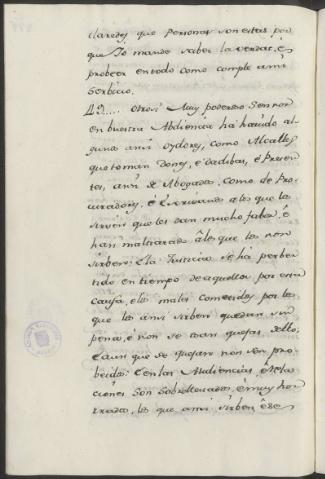 claredes, que Personas son estas por
que Yo mande saber la verdat, é
probeer en todo como cumple a mi
Serbicio.
49.... Otrosi Muy poderoso Sennor
en buestra Abdiencia há habido al-
gunos ansi Oydores, como Alcalles
que toman Dones, é Dadibas, é Presen-
tes, ansi de Abogados, como de Pro-
curadores, é Escrivanos á los que los
sirven que les dan mucho fabor, é
han maltratado á los que les non
sirben: É la Justicia se há perber-
tido en tiempo de aquellos por esta
causa, é los males cometidos por los
que les ansi sirben quedan sin
pena, é non se osan quejar dello,
é aun que se quejan non son pro-
beidos: é en las Audiencias, é Rela-
ciones son sobrellevados, é muy hon-
rrados, los que ansi sirben, é de